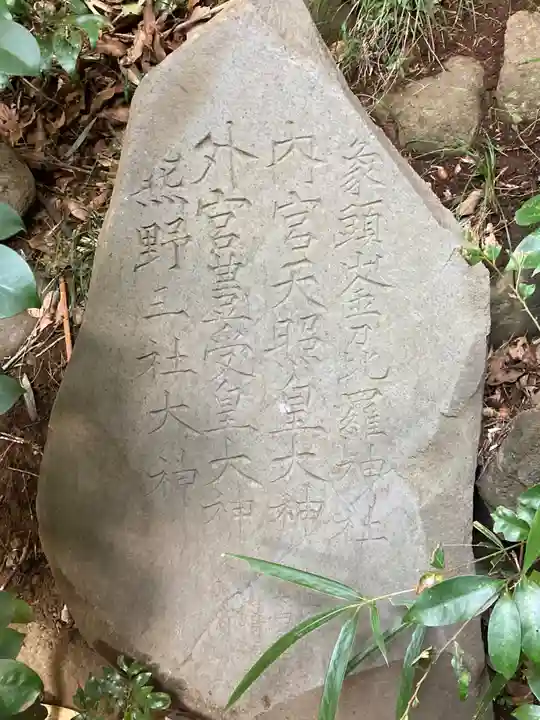 象頭山金刀比羅神社
内宮天照皇大神
外宮豊受皇大神
熊野三社大神